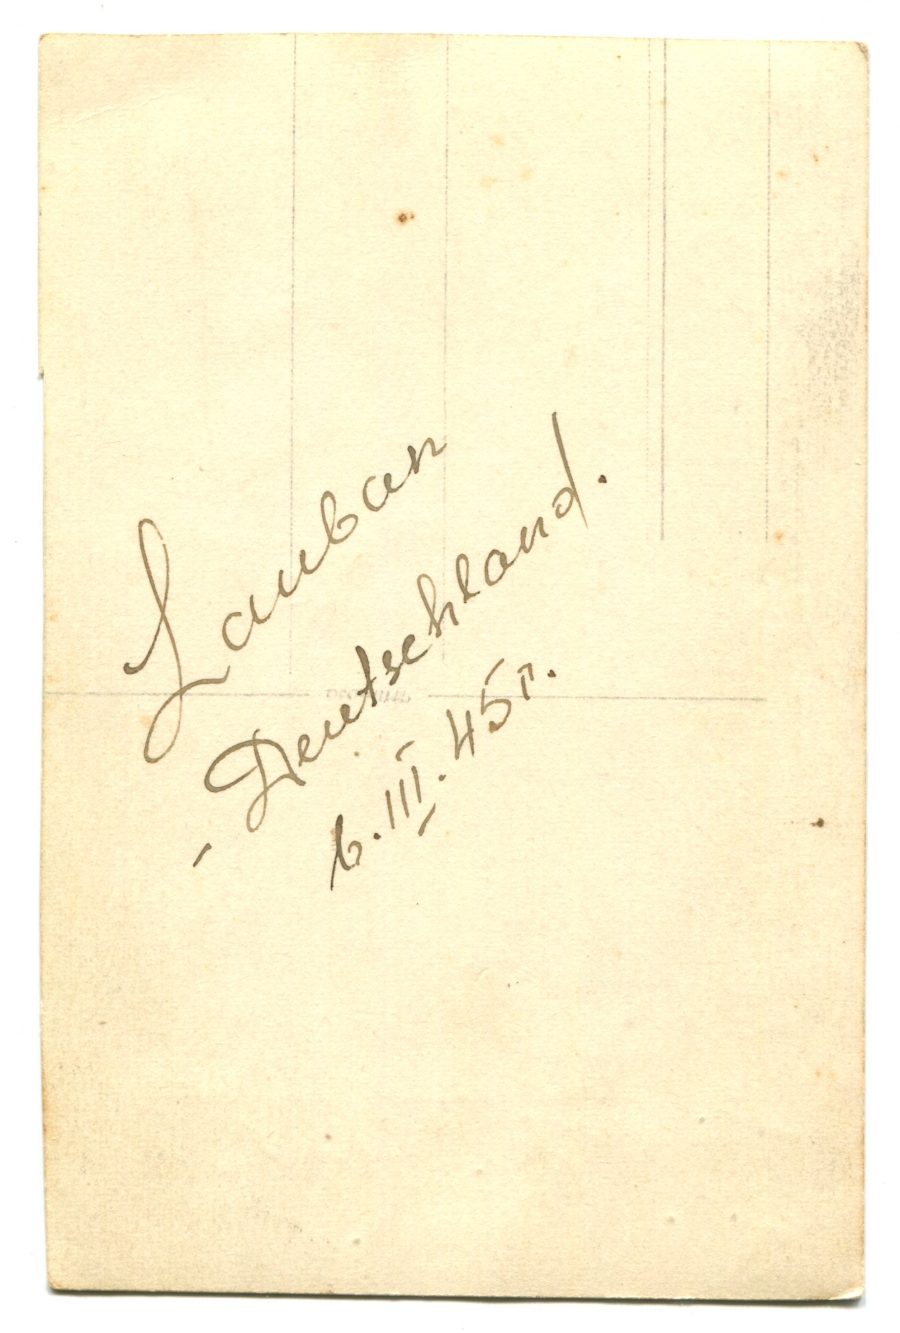 Lauban
- Deutschland.
6.III.45г.